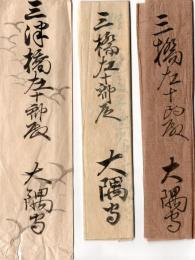 三橋左十郎殿　大隅守
三橋左十郎殿　大隅守
三津橋左十郎殿　大隅守